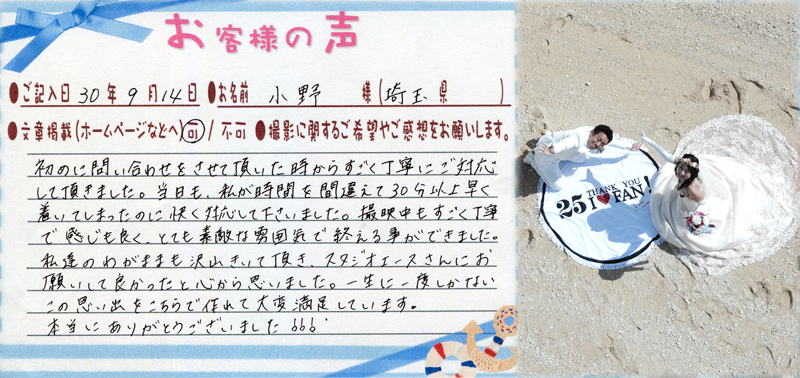 お客様の声
●ご記入日 30年 9月14日 ●お名前 小野 様(埼玉県 )
●文章掲載(ホームページなどへ)可/不可 ●撮影に関するご希望やご感想をお願いします。
初めに問い合わせをさせて頂いた時からすごく丁寧にご対応
して頂きました。当日も、私が時間を間違えて30分以上早く
着いてしまったのに快く対応して下さいました。撮映中もすごく丁寧
で感じも良く、とても素敵な雰囲気で終える事ができました。
私達のわがままも沢山きいて頂き、スタジオエースさんにお
願いして良かったと心から思いました。一生に一度しかない
この思い出をこちらで作れて大変満足しています。
本当にありがとうございました
25 THANK YOU
I ♥ FAN!